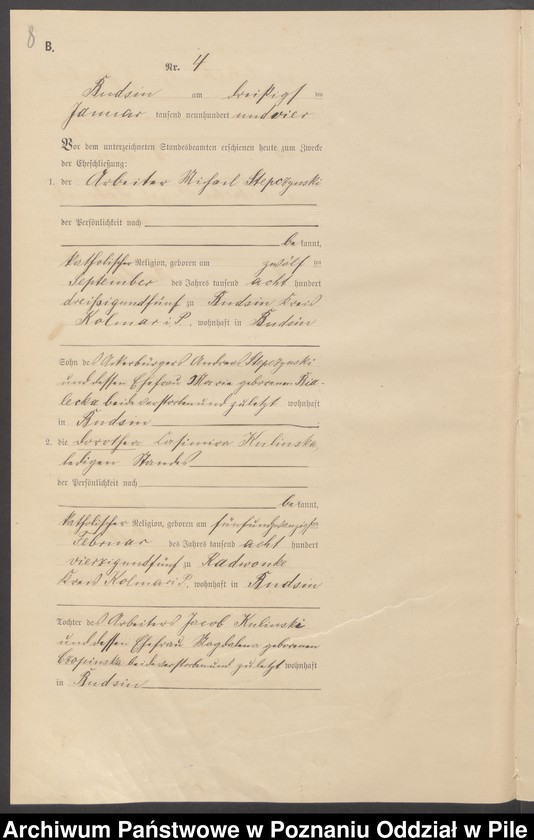 8
B.
Nr. 4
Budsin am dreißigsten
Januar tausend neunhundert und vier
Vor dem unterzeichneten Standesbeamten erschienen heute zum Zwecke
der Eheschließung:
1. der Arbeiter Michael Stepczynski
der Persönlichkeit nach
bekannt,
katholischer Religion, geboren am zwölften
September des Jahres tausend acht hundert
dreissigundfünf zu Budsin Kreis
Kolmar i P., wohnhaft in Budsin
Sohn des Ackerbürgers Andreas Stepczynski
und dessen Ehefrau Marie geborenen
beide verstorben und zuletzt wohnhaft
in Budsin
2. die Dorothea Casimira Kulinska,
ledigen Standes
der Persönlichkeit nach
bekannt,
katholischer Religion, geboren am fünfundzwanzigsten
Februar des Jahres tausend acht hundert
vierzigundfünf zu Radwonke
Kreis Kolmar i P., wohnhaft in Budsin
Tochter des Arbeiters Jacob Kulinski
und dessen Ehefrau Magdalena geborenen
beide verstorben und zuletzt wohnhaft
in Budsin
Archiwum Państwowe w Poznaniu Oddział w Pile